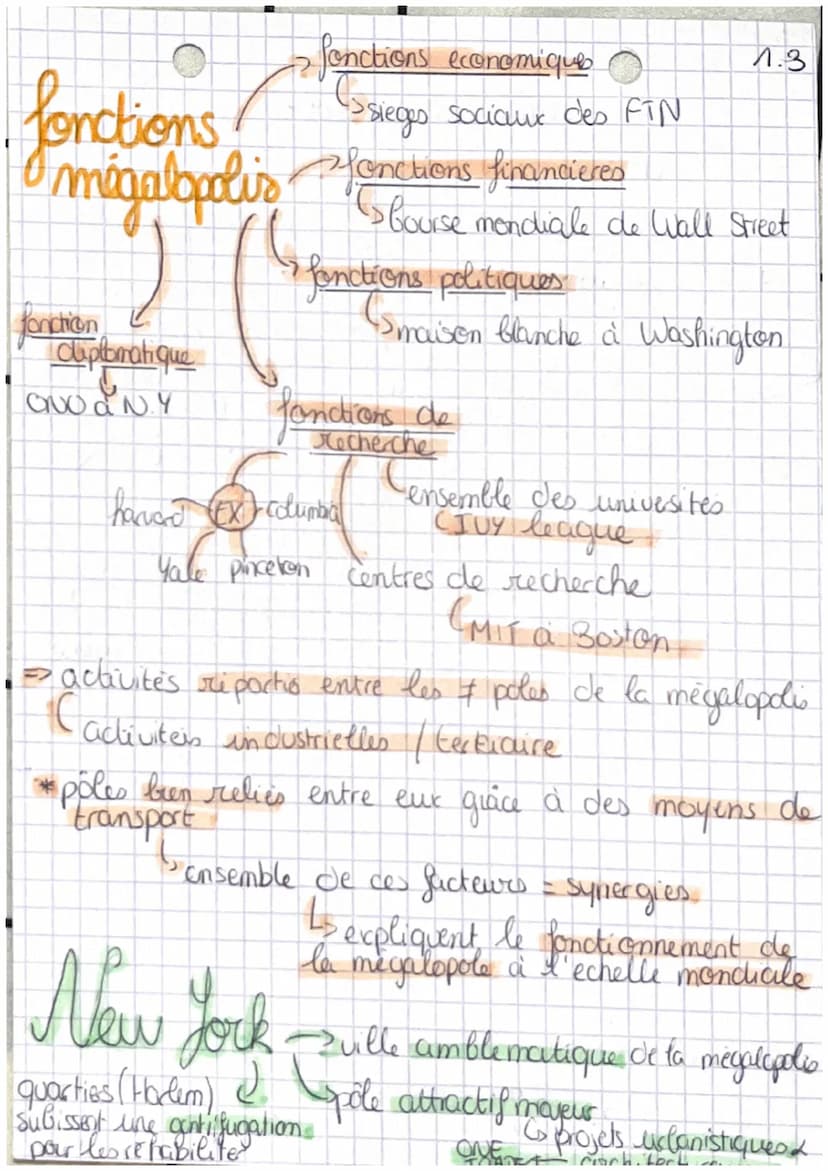 1.3
fonctions
mégalopolis
fonctions economiques
sieges sociaux des FTN
fonctions financieres
bourse mondiale de Wall Street
fonctions politiques
maison blanche à Washington
fonction
diplomatique
ONU à N.Y
fonctions de
recherche
ensemble des univesités
(IUY league
harvard EX columbia
Yale pinceton
centres de recherche
MIT à Boston
=> activités répartis entre les ≠ poles de la mégalopolis
activités industrielles / tertiaire
* pôles bien reliés entre eux grâce à des moyens de
transport
ensemble de ces facteurs = synergies
expliquent le fonctionnement de
la mégalopole à l'echelle mondiale
New York
ville amblematique de la mégalopolis
pôle attractif majeur
projets urbanistiques &
quarties (Harlem)
subissent une
pour les réhabiliter
ONE